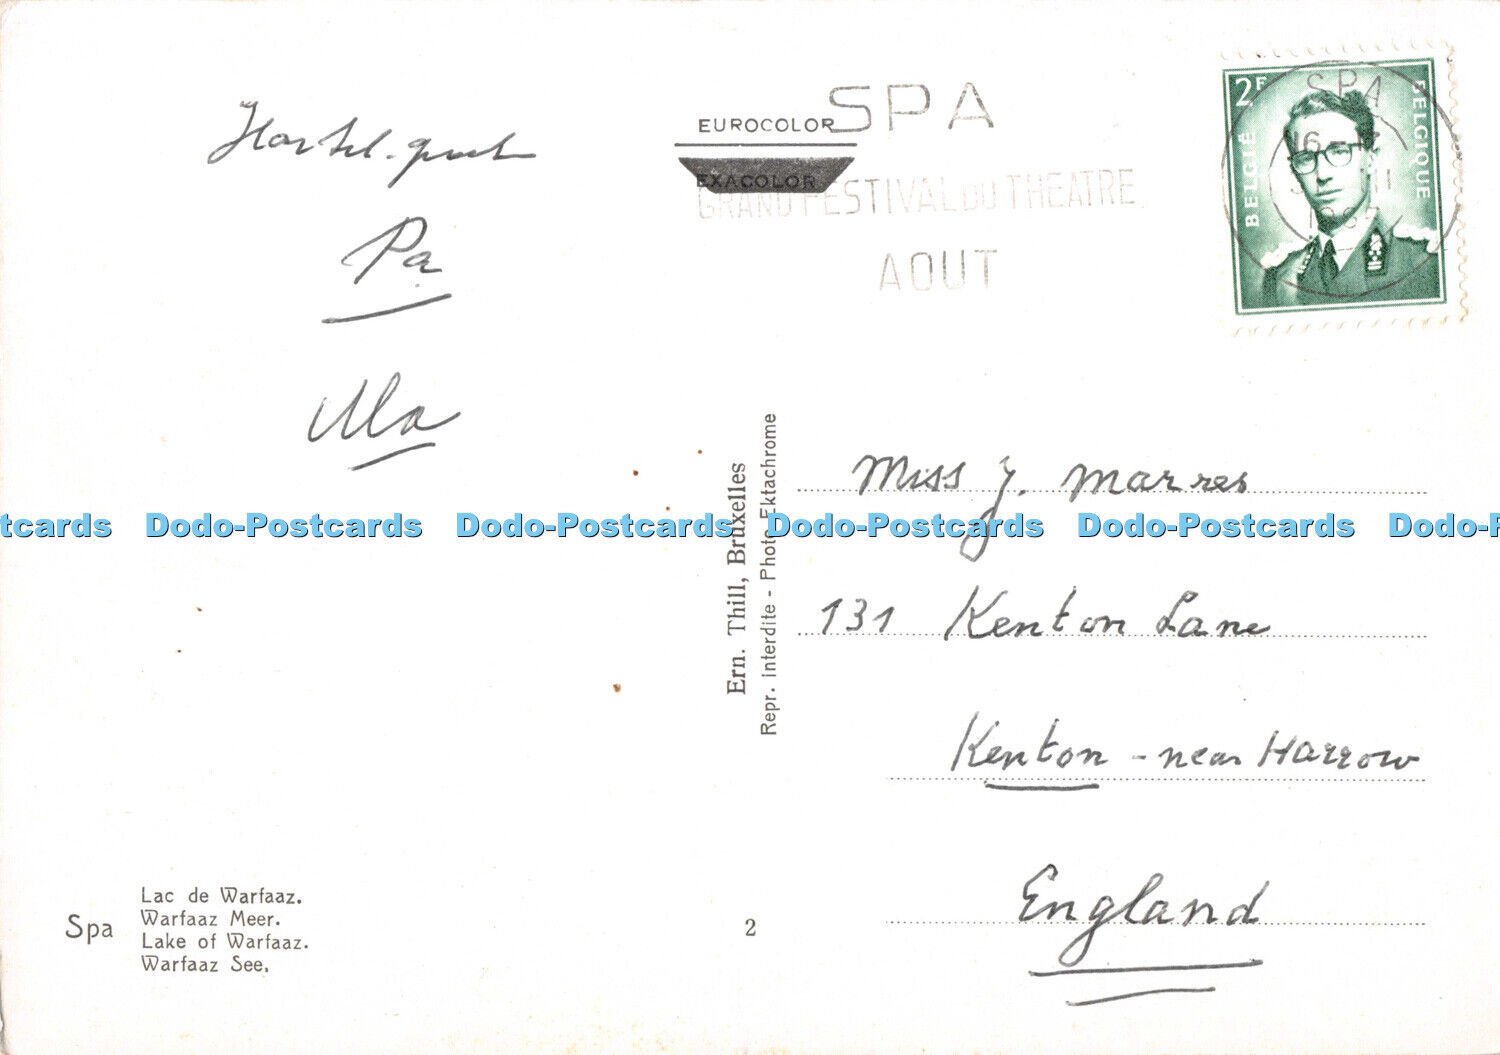 SPA
EUROCOLOR
EXACOLOR
GRAND FESTIVAL DU THEATRE
AOUT
2F
BELGIË
BELGIQUE
SPA
Pa
Ma
Miss J. Marres
131 Kenton Lane
Kenton - near Harrow
England
Ern. Thill, Bruxelles
Repr. interdite - Photo Ektachrome
Dodo-Postcards Dodo-Postcards Dodo-Postcards Dodo-Postcards
Spa
Lac de Warfaaz.
Warfaaz Meer.
Lake of Warfaaz.
Warfaaz See.
2